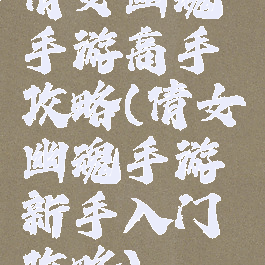 倩女幽魂
手游高手
攻略(倩女
幽魂手游
新手入门
攻略)